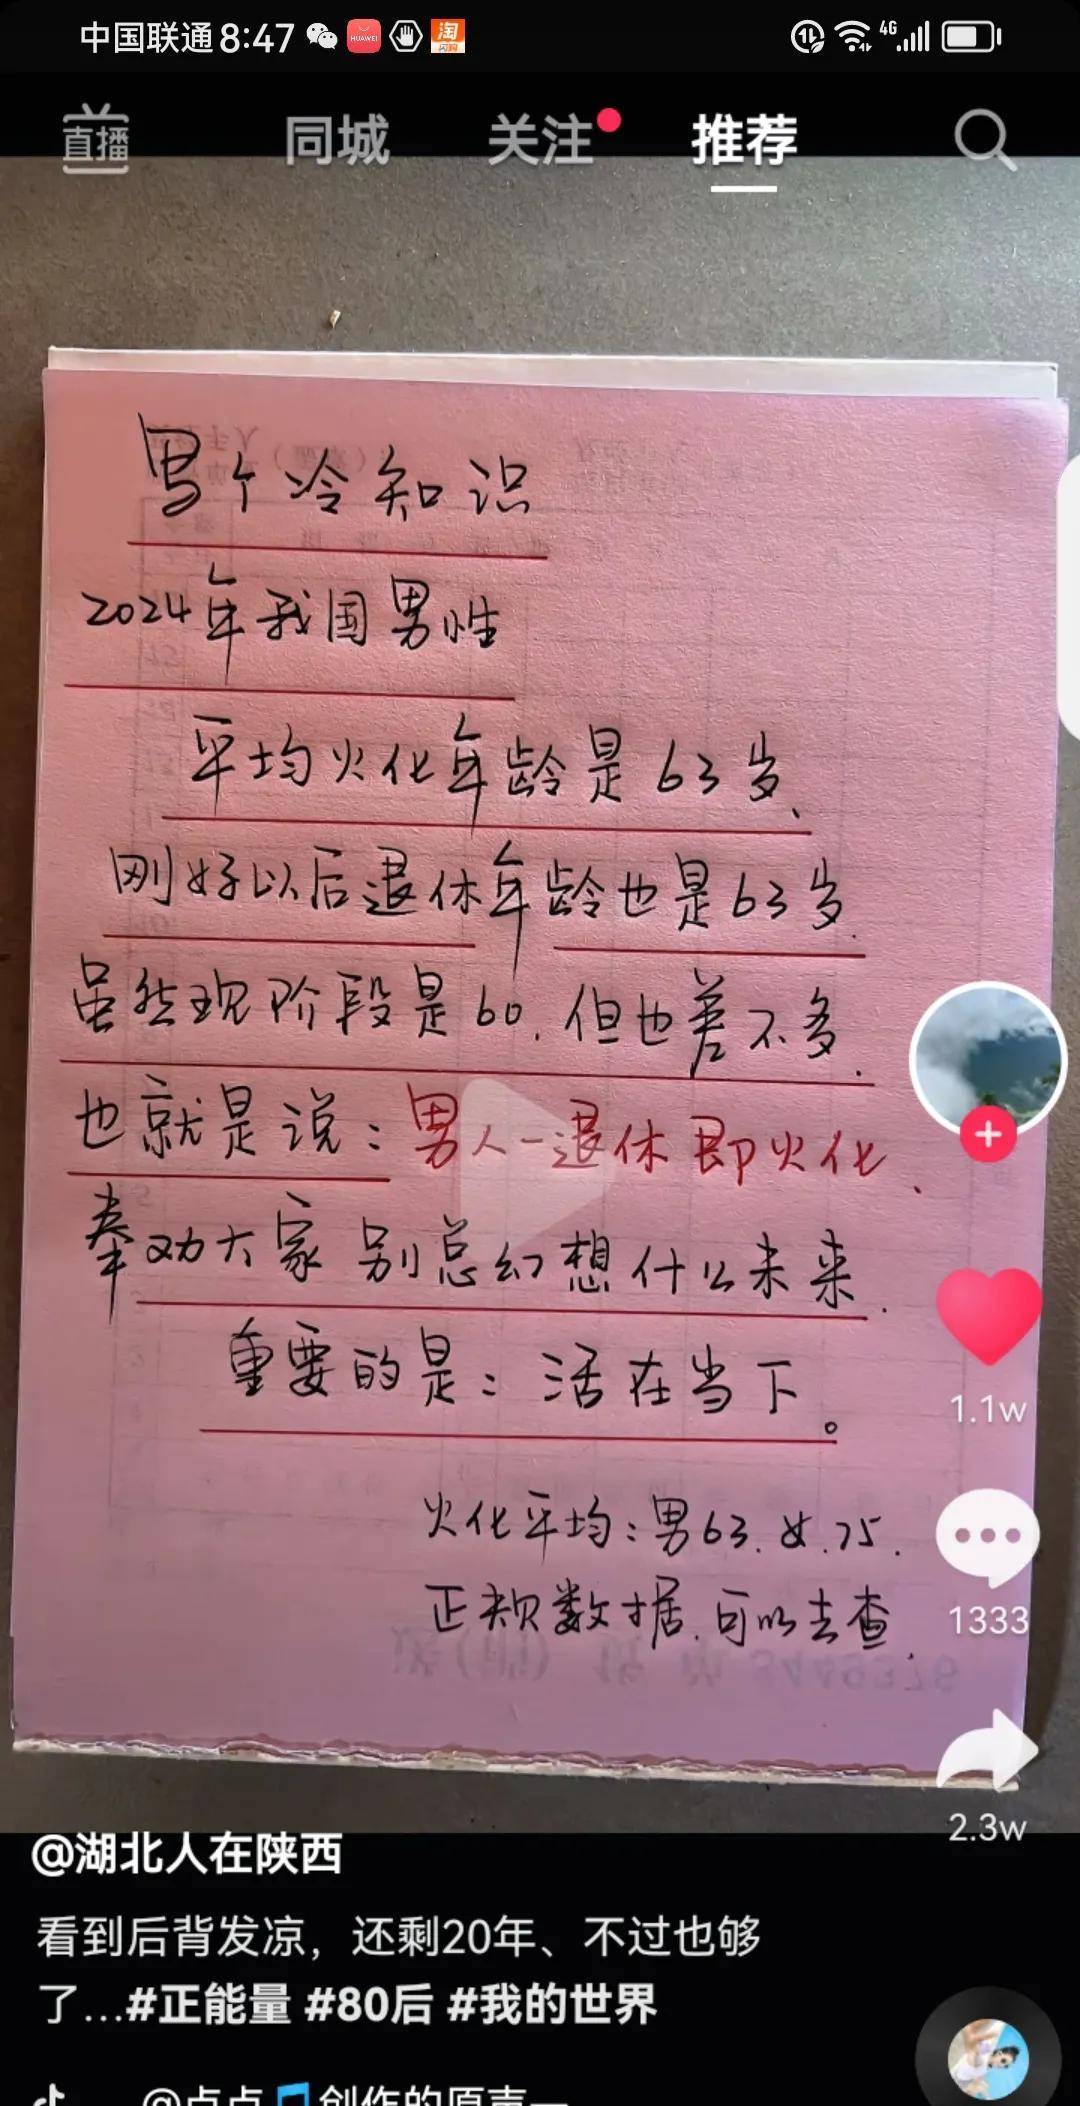 中国联通 8:47 HUAWEI 淘 闪购 4G
直播 同城 关注 推荐
写个冷知识
2024年我国男性
平均火化年龄是63岁、
刚好以后退休年龄也是63岁.
虽然现阶段是60.但也差不多.
也就是说：男人一退休即火化.
奉劝大家别总幻想什么未来.
重要的是：活在当下。
火化平均：男63.女.75.
正规数据.可以去查.
1.1w
1333
2.3w
@湖北人在陕西
看到后背发凉，还剩20年、不过也够
了...#正能量 #80后 #我的世界
@点点🎵创作的原声一